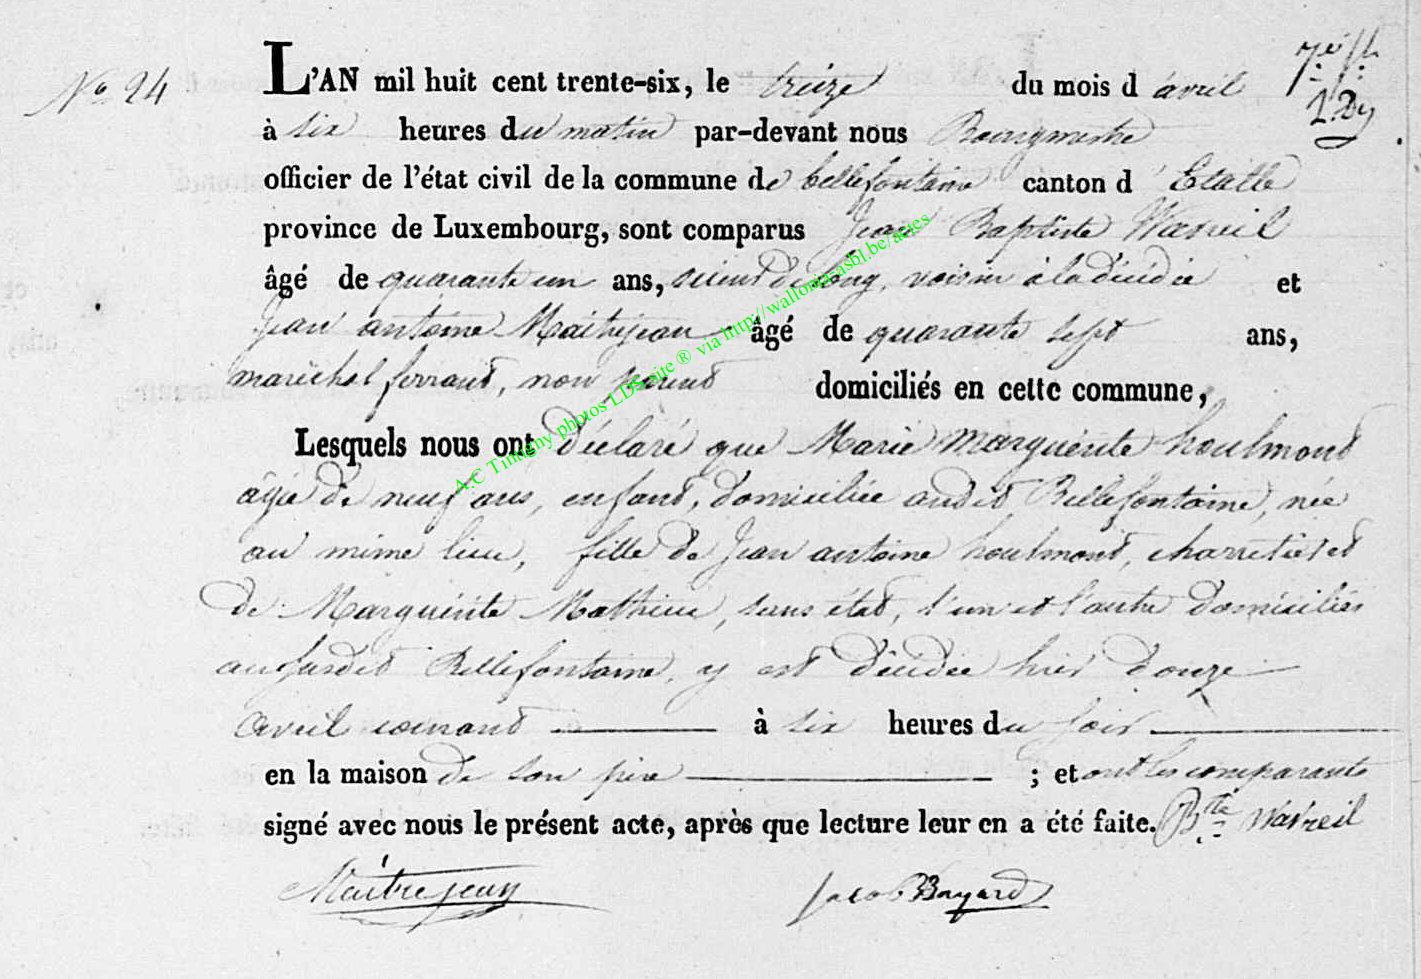 No 24
L'AN mil huit cent trente-six, le treize du mois d avril
à six heures du matin par-devant nous Bourgmestre
officier de l'état civil de la commune de bellefontaine canton d' Etalle
province de Luxembourg, sont comparus Jean Baptiste Wavreil
âgé de quarante un ans, scieur de long, voisin à la décédée et
Jean antoine Maitrejean âgé de quarante sept ans,
maréchal ferrant, non parent domiciliés en cette commune,
Lesquels nous ont déclaré que Marie Marguerite houlmont
âgée de neuf ans, enfant, domiciliée audit Bellefontaine, née
au même lieu, fille de Jean antoine houlmont, charretier et
de Marguérite Mathieu, sans état, l'un et l'autre domiciliés
au susdit Bellefontaine, y est décédée hier douze
avril courant à six heures du soir
en la maison de son père ; et ont les comparants
signé avec nous le présent acte, après que lecture leur en a été faite. Bte Wavreil
Maitrejean Jacob Bayard
A.C Tintigny photos LDS site ® via http://walloniaasbl.be/actes